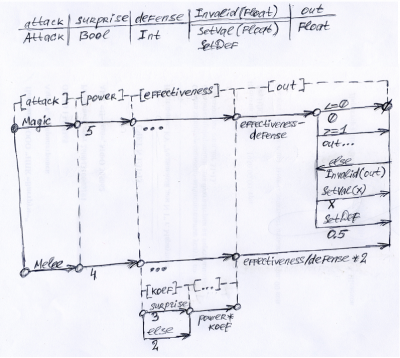 attack | surprise | defense | Invalid(Float) | out
Attack | Bool | Int | SetVal(Float) | Float
SetDef
[attack] [power] [effectiveness] [out]
Magic
5
...
effectiveness-
defense
<=0
0
>=1
out...
else
Invalid(out)
SetVal(x)
x
SetDef
0,5
Melee
4
...
effectiveness/defense*2
[koef] [...]
surprise
3
else
2
power*
koef